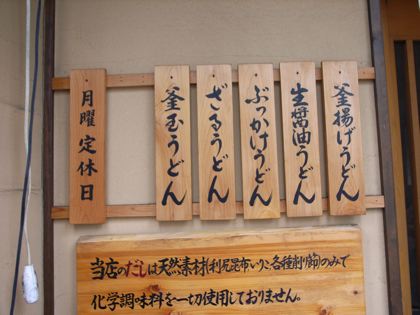 釜揚げうどん
生醤油うどん
ぶっかけうどん
ざるうどん
釜玉うどん
月曜定休日
当店のだしは天然素材(利尻昆布いりこ各種削り節)のみで
化学調味料を一切使用しておりません。